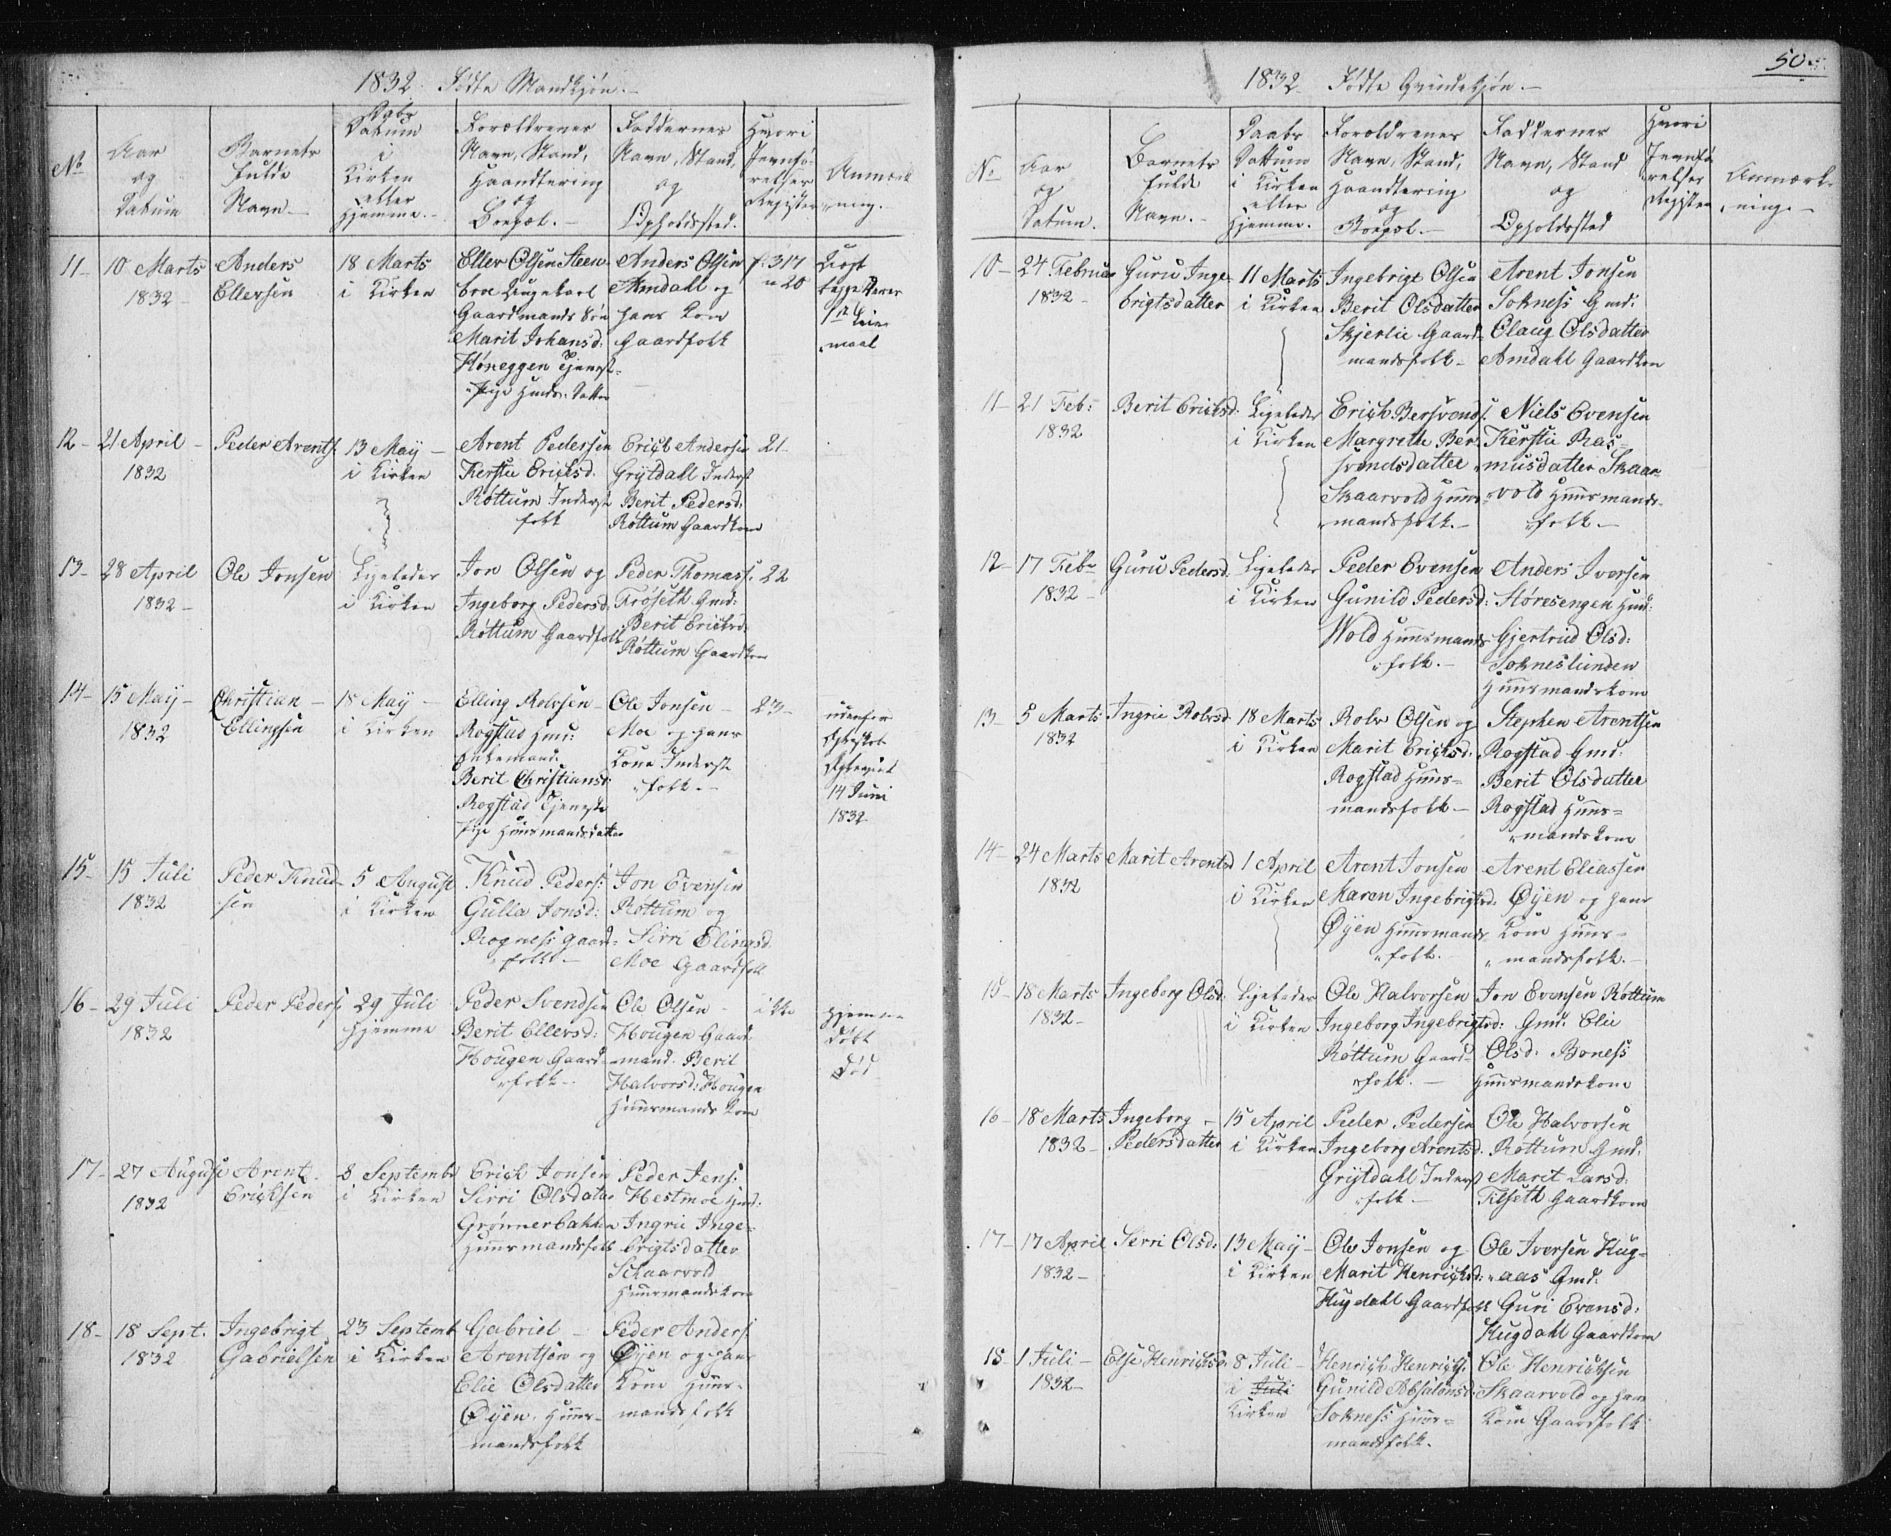 1832. Fødte Mandkjøn.-
No
Aar
og
Datum
Barnets
fulde
Navn.-
Daabs
Datum
i
Kirken
eller
Hjemme.-
Forældrenes
Navn, Stand,
Haandtering
og
Boepæl.-
Faddernes
Navn, Stand,
og
Opholdssted.
Hvori
Jevnfø-
relses
Register
Anmærk
-ning.
11- 10 Marts
1832-
Anders
Ellevsen
18 Marts
i Kirken
Ellev Olsen Steen
bro Ungekarl
Gaardmands Søn
Marit Johansd:
Høneggen Tjenest-
Pige Huusm: Datter
Anders Olsen
Amdahl og
hans Kone
Gaardfolk
f: 317
n 20
1ste Leier
maal
12- 21 April-
1832
Peder Arents.
13 May-
i Kirken
Arent Pedersen
Kersti Ericksd.
Røttum Inderst
folk
Erich Andersen
Grytdahl Inderst
Berit Pedersd:
Røttum Gaardkone
21-
13- 28 April
1832-
Ole Jonsen
Ligeledes
i Kirken
Jon Olsen og
Ingeborg Pedersd.
Røttum Gaardfolk
Peder Thomass.
Frøseth Gmd:
Berit Ericksd:
Røttum Gaardkone
22
14- 15 May-
1832
Christian-
Ellingsen
18 May-
i Kirken
Elling Rolvsen-
Rogstad Hmd:
Enkemand:
Berit Christiansd:
Rogstad Tjeneste
Pige Huusmandsdatter
Ole Jonsen-
Moe og hans
Kone Inderst
folk.-
23-
udenfor
Ægteskab
14 Juni
1832
15- 15 Juli
1832
Peder Knud-
sen
5 August
i Kirken
Knud Peders:
Gulla Jonsd:
Rogness Gaard-
folk-
Jon Evensen
Rottum og
Sirri Elingsd.
Moe Gaardfolk
16- 29 Juli
1832
Peder Peders:
29 Juli
Hjemme
Peder Svendsen
Berit Ellevsd:
Hougen Gaard-
folk-
Ole Olsen-
Hougen Gaard
mand. Berit
Halvorsd: Hougen
Huusmands Kone
ikke
hjemme
døbt
død
17- 27 August
1832
Arent
Ericksen
8 Septembr
i Kirken
Erich Jonsen
Sirri Olsdatter
Grønnerbakken
Huusmandsfolk
Peder Jens:
Hestmoe Hmd:
Ingrie Inge-
brigtsdatter
Schaarvold
Huusmandskone
18- 18 Sept.
1832
Ingebrigt
Gabrielsen
23 Septemb.
i Kirken
Gabriel-
Arentsen og
Elie Olsdatter
Øyen, Huus-
mandsfolk
Peder Anders.
Øyen og hans
Kone Huus-
mandsfolk
50.
1832- Fødte Qvindekjøn.-
No
Aar
og
Datum.
Barnets
fulde
Navn.-
Daabs
Dattum
i Kirken
eller
Hjemme.
Foræeldrenes
Navn, Stand,
Haandtering
og
Boepæl.-
Faddernes
Navn, Stand
og
Opholdssted
Hvori
Jevnfø-
relses
Register
Anmærk-
ning-
10- 24 Februar
1832-
Guru Inge-
brigtsdatter
11 Marts
i Kirken
Ingebrigt Olsen
Berit Olsdatter
Skjerlie Gaard-
mandsfolk-
Arent Jonsen
Sokness Gmd:
Olaug Olsdatter
Amdahl Gaardkone
11- 21 Feb:
1832
Berit Ericksd:
Ligeledes
i Kirken
Erich Bersvends.
Margreth Ber-
svendsdatter
Skaarvold Huus-
mandsfolk.-
Niels Evensen
Kerstie Ras-
musdatter Skaar-
vold Huusmands-
folk-
12- 17 Febr
1832-
Guru Pedersd.
Ligeledes
i Kirken
Peder Evensen
Gunild Pedersd:
Wold Huusmands
folk.-
Anders Iversen
Støresengen Hmd:
Gjertrud Olsd:
Sokneslunden
Huusmandskone
13- 5 Marts
1832
Ingrie Rolvsd.
18 Marts
i Kirken
Rolv Olsen og
Marit Ericksd:
Rogstad Huus-
mandsfolk-
Stephen Arentsen
Rogstad Gmd:
Berit Olsdatter
Rogstad Huus-
mandskone
14- 24 Marts
1832
Marit Arentsd
1 April
i Kirken
Arent Jonsen
Maren Ingebrigtsd:
Øyen Huusmands
folk.
Arent Eliassen
Øyen og hans
Kone Huus-
mandsfolk.-
15- 18 Marts
1832-
Ingeborg Olsd:
Ligeledes
i Kirken
Ole Halvorsen
Ingeborg Ingebrigtsd:
Røttum Gaard-
folk.-
Jon Evensen Røttum
Gmd. Elie
Olsd: Boness
Huusmandskone
16- 18 Marts
1832-
Ingeborg-
Pedersdatter
15 April
i Kirken
Peder Pedersen
Ingeborg Arentsd.
Grytdahl Inderst
folk-
Ole Halvorsen
Rottum Gmd.
Marit Larsd:
Tilseth Gaardkone
17- 17 April
1832-
Sirri Olsd:
13 May-
i Kirken
Ole Jonsen og
Marit Henricksd:
Hugdahl Gaardfolk
Ole Iversen Hug-
aas Gmd:
Guri Evensd:
Hugdahl Gaardkone
18- 1 Juli-
1832-
Else Henricksd.
8 Juli-
i Juli
Kirken
Henrich Henricks.
Gunild Absalonsd:
Sokness Huus-
mandsfolk.
Ole Henricksen
Skaarvold og hans
Kone Gaardfolk